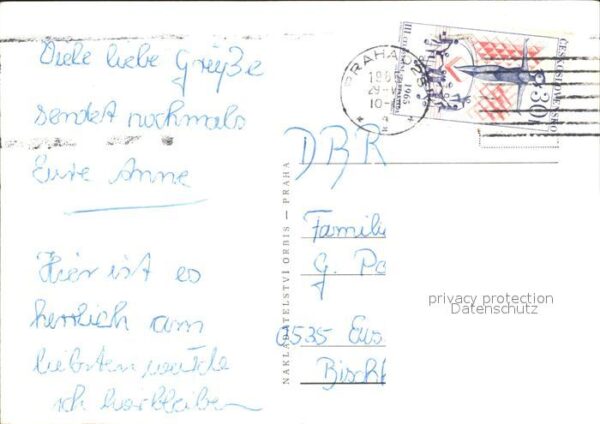 Viele liebe Grüße
sendet nochmals
Eure Anne
Hier ist es
herrlich am
liebsten würde
ich hierbleiben
NAKLADATELSTVÍ ORBIS — PRAHA
PRAHA
1965
ČESKOSLOVENSKO
30h
DBR
Famili
G. Po
6535
Bisch
privacy protection
Datenschutz